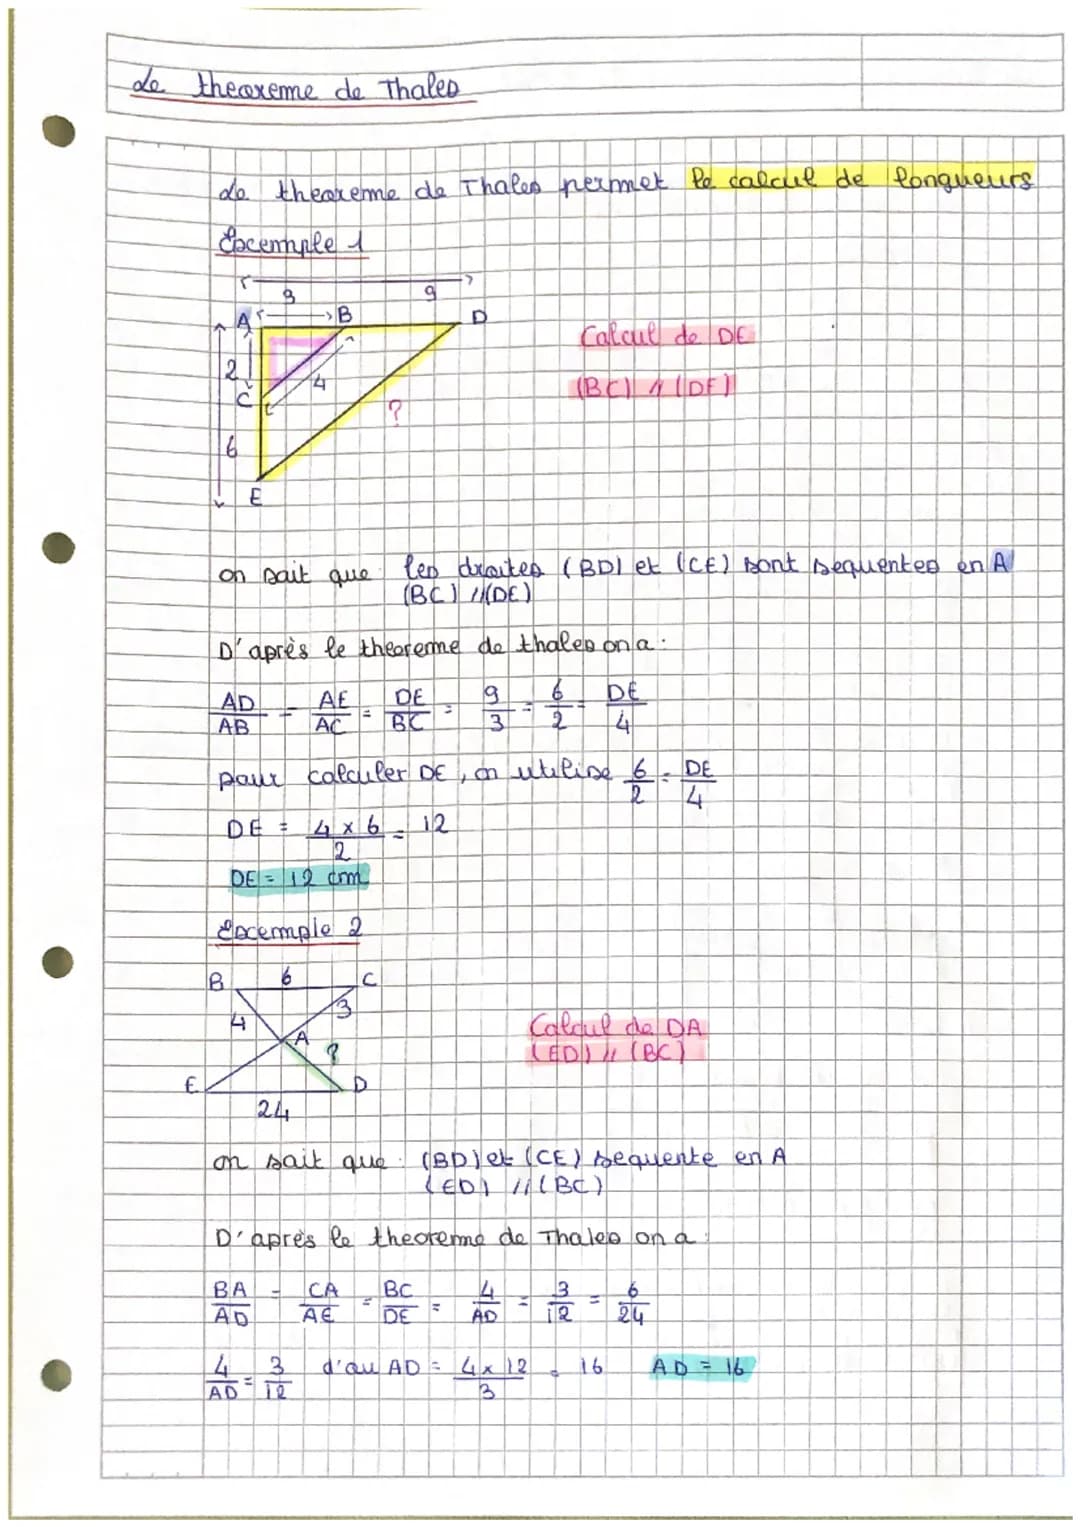 Le theoreme de Thales
Le theoreme de Thales permet le calcul de longueurs
Excemple 1
3 9
A B D
2 4
C ?
6
E
Calcul de DE
(BC) // (DE)
on sait que : les droites (BD) et (CE) sont sequentes en A
(BC) // (DE)
D'après le theoreme de thales on a :
AD/AB = AE/AC = DE/BC = 9/3 = 6/2 = DE/4
pour calculer DE, on utilise 6/2 = DE/4
DE = 4 x 6/2 = 12
DE = 12 cm
Excemple 2
B 6 C
4 3
A ?
E D
24
Calcul de DA
(ED) // (BC)
on sait que : (BD) et (CE) sequente en A
(ED) // (BC)
D'aprés le theoreme de Thales on a :
BA/AD = CA/AE = BC/DE = 4/AD = 3/12 = 6/24
4/AD = 3/12 d'au AD = 4 x 12/3 = 16 AD = 16